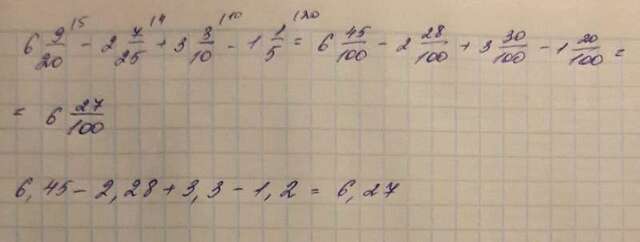 6 9/20 /5 - 2 7/25 /4 + 3 3/10 /10 - 1 1/5 /20 = 6 45/100 - 2 28/100 + 3 30/100 - 1 20/100 =
= 6 27/100
6,45 - 2,28 + 3,3 - 1,2 = 6,27